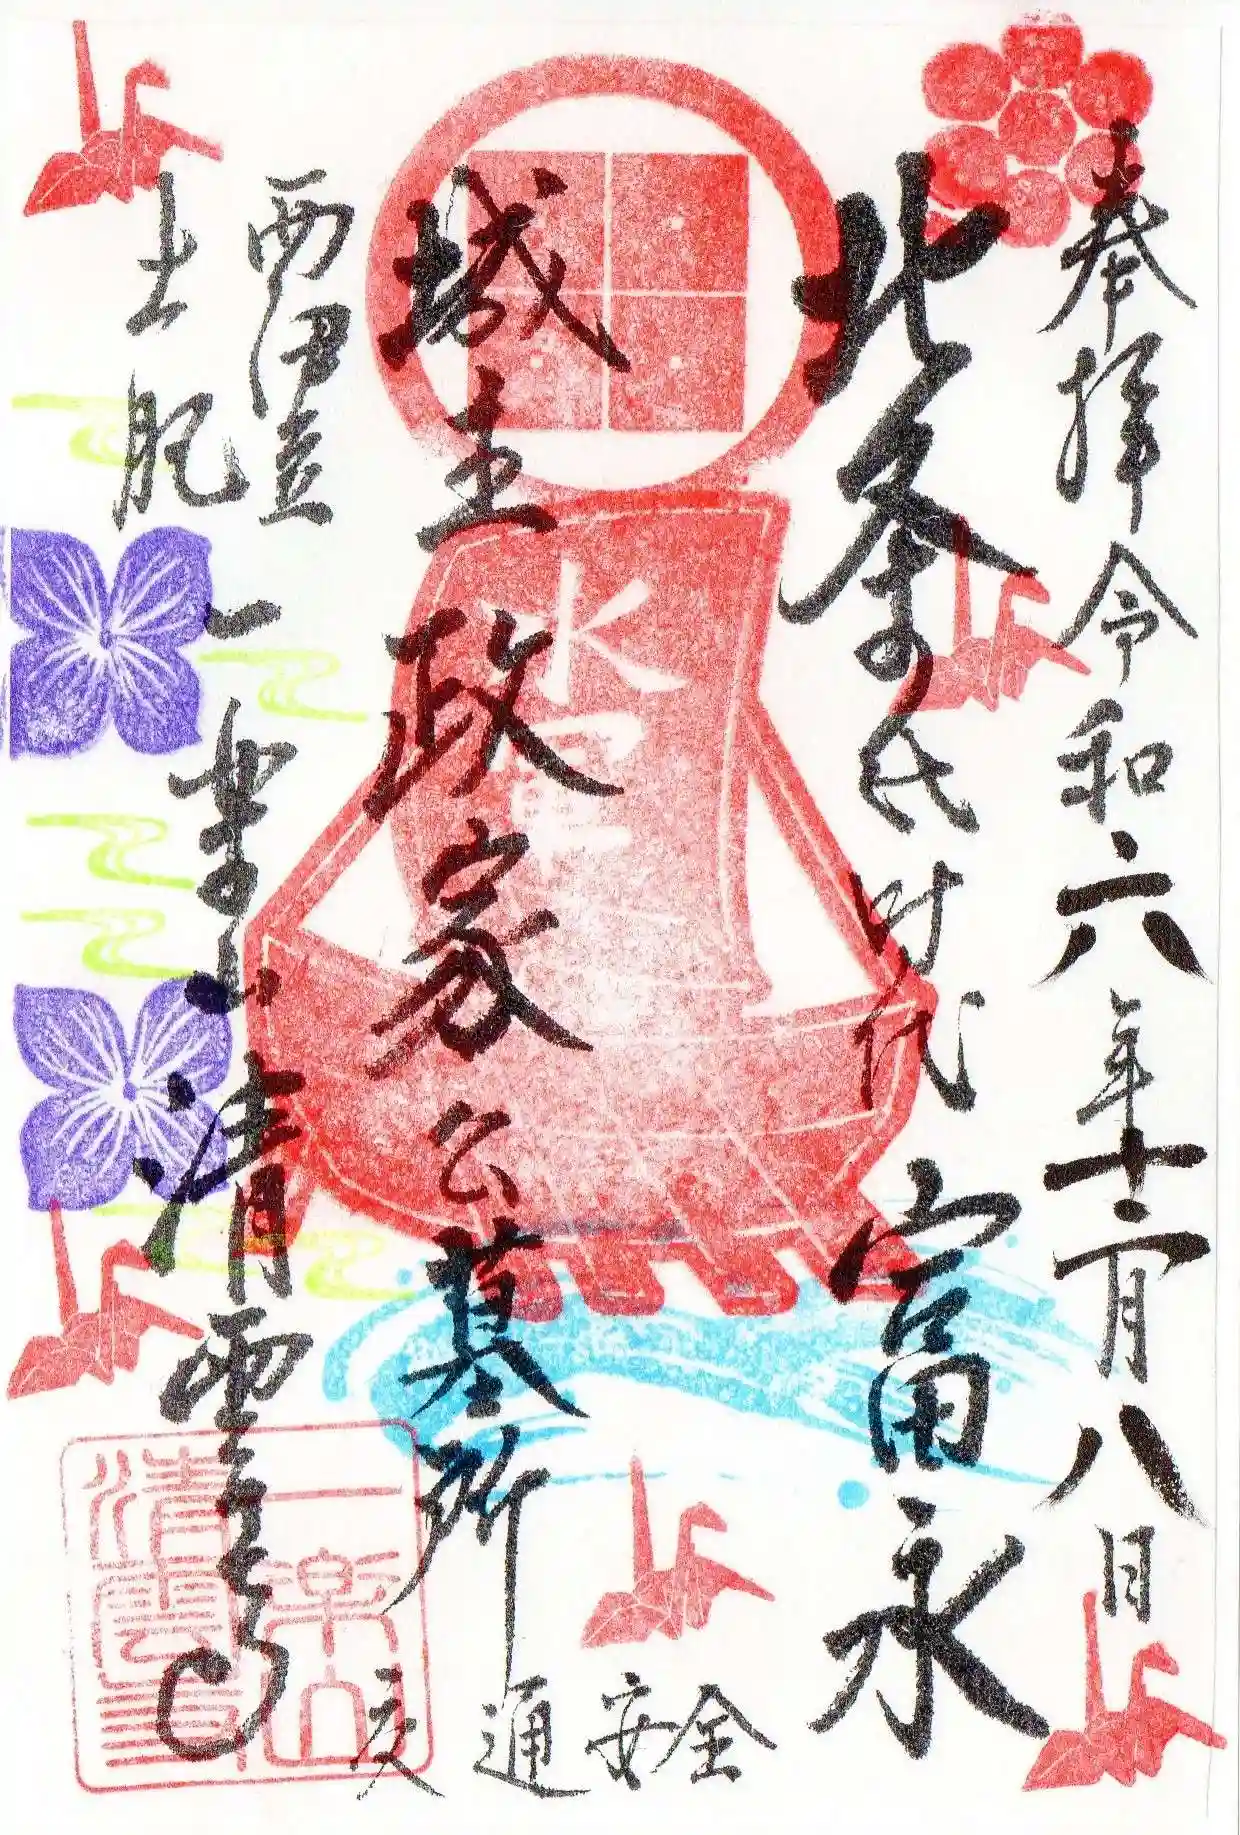 奉拝 令和六年十二月八日
北条氏時代 富永
城主 政家公墓所
西伊豆
土肥
一楽山 清雲寺
水軍
交通安全
一楽山
清雲寺